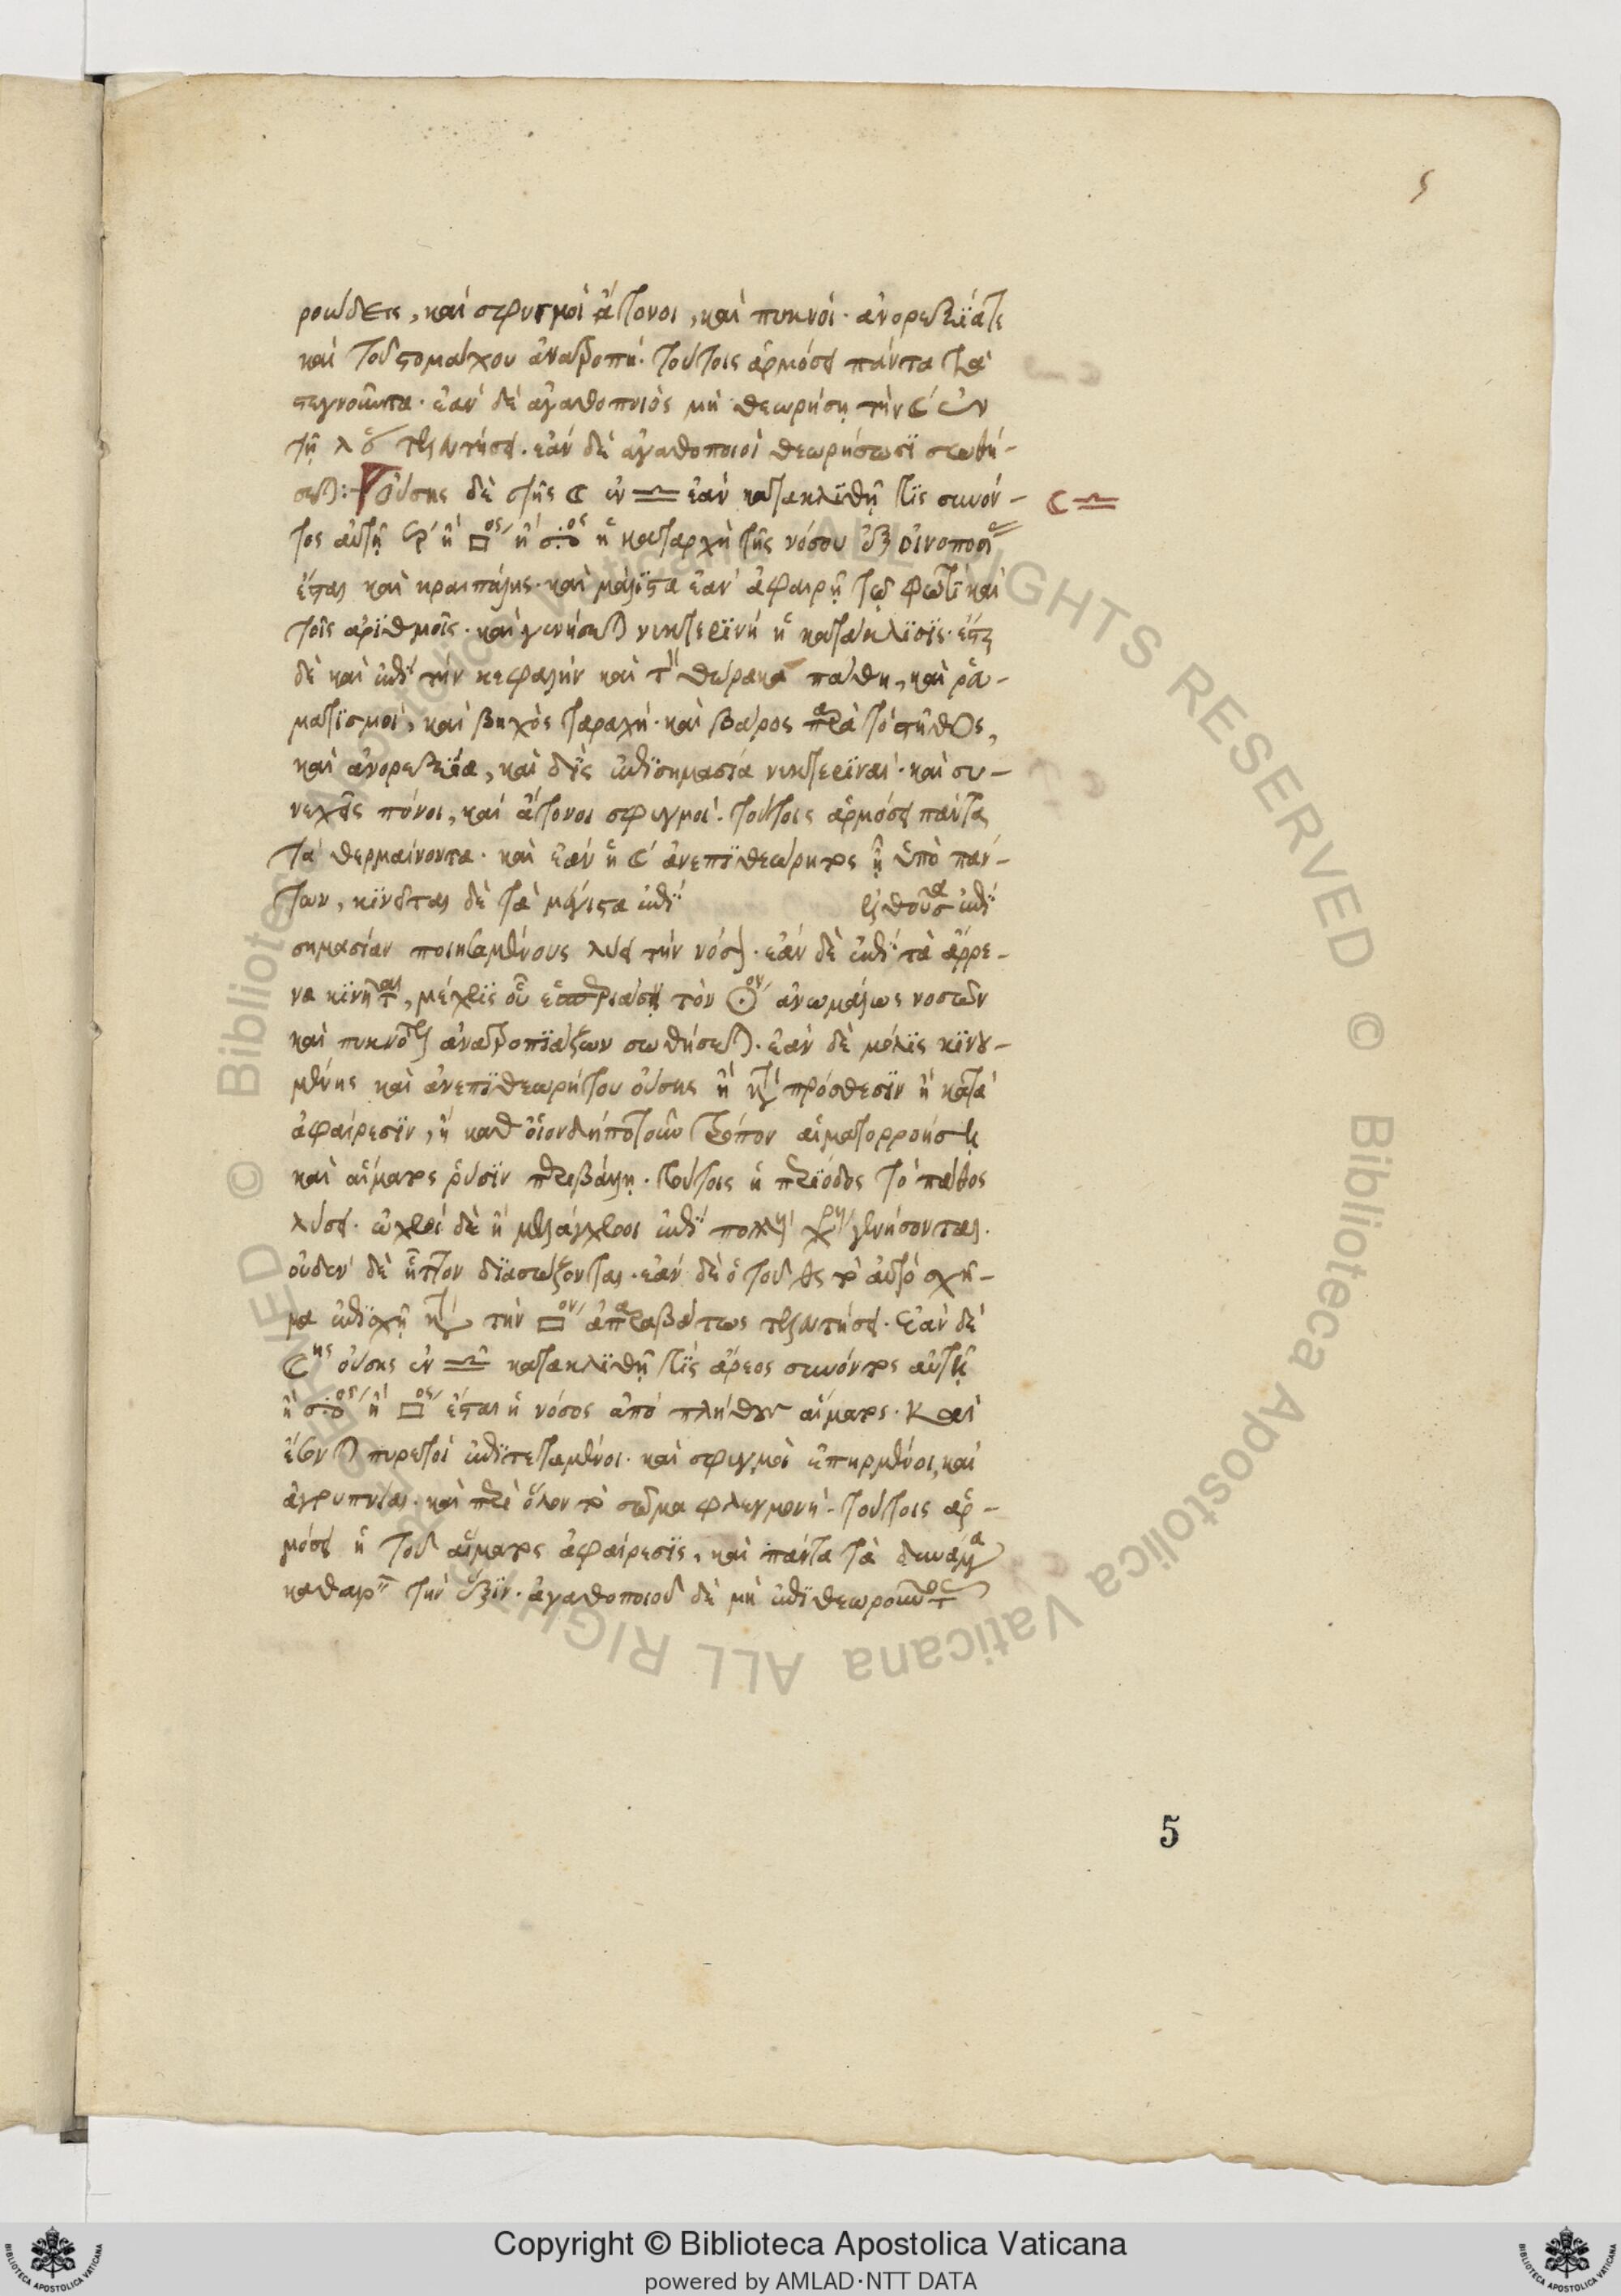 ς
ροώδεις, καὶ σφυγμοὶ ἄτονοι, καὶ πυκνοί· ἀνορεξΐα τε
καὶ τοῦ στομάχου ἀνατροπή· τούτοις ἁρμόσει πάντα τὰ
στεγνοῦντα· ἐὰν δὲ ἀγαθοποιὸς μὴ θεωρήσῃ τὴν ☾ ἐν
τῇ τελευτήσει· ἐὰν δὲ ἀγαθοποιοὶ θεωρήσωσϊ σωθή-
σεται: Οὔσης δὲ τῆς ☾ ἐν ♎ ἐὰν κατακλϊθῇ τϊς συνόν- ☾ ♎
τος αὐτῇ ἢ □ος ἢ ἡ καταρχὴ τῆς νόσου ἐξ οἰνοποσί
ἔσται καὶ κραιπάλης· καὶ μάλϊστα ἐὰν ἀφαιρῇ τῷ φωτὶ καὶ
τοῖς ἀρϊθμοῖς· καὶ γενήσεται νυκτερϊνὴ ἡ κατάκλϊσϊς· ἔσται
δὲ καὶ ἐπὶ τὴν κεφαλὴν καὶ τ θώρακα πάθη, καὶ ῥα-
ματϊσμοί, καὶ βηχὸς ταραχή· καὶ βάρος παρὰ τὸ στῆθος,
καὶ ἀνορεξΐα, καὶ δὶς ἐπϊσημασΐα νυκτερϊναί· καὶ συ-
νεχεῖς πόνοι, καὶ ἄτονοι σφυγμοί· τούτοις ἁρμόσει πάντα
τὰ θερμαίνοντα· καὶ ἐὰν ἡ ☾ ἀνεπϊθεώρητος ᾖ ὑπὸ πάν-
των, κϊνεῖται δὲ τὰ μέγιστα ἐπὶ ἐλθοῦσα ἐπϊ
σημασίαν ποιησαμένους λύσει τὴν νόσον· ἐὰν δὲ ἐπὶ τὰ ἄρρε-
να κϊνῆται, μέχρϊς οὗ τὸν ☉ον ἀνωμάλως νοσῶν
καὶ πυκνότερον ἀνατροπϊάζων σωθήσεται· ἐὰν δὲ μόλϊς κϊνου-
μένης καὶ ἀνεπϊθεωρήτου οὔσης ἢ κατὰ πρόσθεσϊν ἢ κατὰ
ἀφαίρεσϊν, ἢ καθ' οἱονδήποτοῦν τρόπον αἱμορροήσῃ
καὶ αἵματος ῥύσϊν περιβάλῃ· τούτοις ἡ περϊόδος τὸ πάθος
λύσει· ὠχροὶ δὲ ἢ μελάγχροοι ἐπὶ πολὺ χρόνον γενήσονται·
οὐδὲν δὲ ἧττον δϊασώζονται· ἐὰν δὲ ὁ τοῦ τὸ αὐτὸ σχῆ-
μα ἐπϊσχῇ κατὰ τὴν □ον ἀπαραβάτως τελευτήσει· Ἐὰν δὲ
☾ης οὔσης ἐν ♎ κατακλϊθῇ τϊς ἄρεος συνόντος αὐτῇ
ἢ ἢ □ος ἔσται ἡ νόσος ἀπὸ πλήθους αἵματος· Καὶ
ἔσονται πυρετοὶ ἐπϊτεταμένοι· καὶ σφυγμοὶ ἐπηρμένοι, καὶ
ἀγρυπνίαι· καὶ περὶ ὅλον τὸ σῶμα φλεγμονή· τούτοις ἁρ-
μόσει ἡ τοῦ αἵματος ἀφαίρεσϊς, καὶ πάντα τὰ δυνάμενα
καθαίρειν τὴν ἕξϊν· ἀγαθοποιοῦ δὲ μὴ ἐπϊθεωροῦντος
5
Copyright © Biblioteca Apostolica Vaticana
powered by AMLAD·NTT DATA